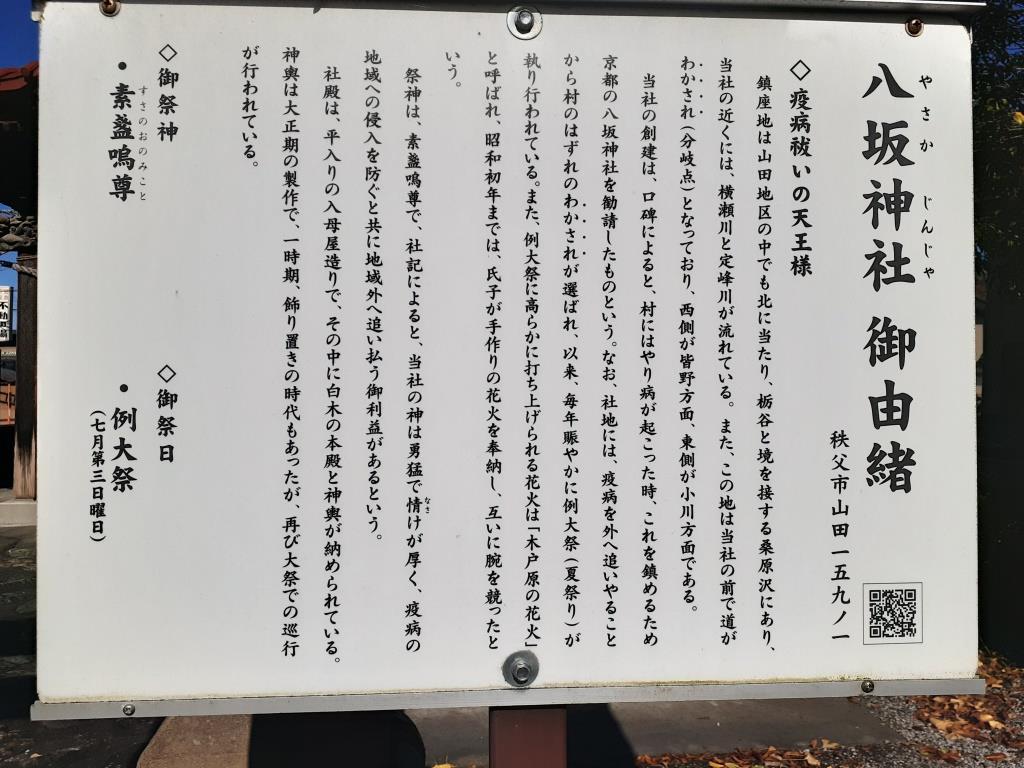 八坂神社 御由緒
やさか じんじゃ
秩父市山田一五九ノ一
◇疫病祓いの天王様
鎮座地は山田地区の中でも北に当たり、栃谷と境を接する桑原沢にあり、
当社の近くには、横瀬川と定峰川が流れている。また、この地は当社の前で道が
わかされ(分岐点)となっており、西側が皆野方面、東側が小川方面である。
当社の創建は、口碑によると、村にはやり病が起こった時、これを鎮めるため
京都の八坂神社を勧請したものという。なお、社地には、疫病を外へ追いやること
から村のはずれのわかされが選ばれ、以来、毎年賑やかに例大祭(夏祭り)が
執り行われている。また、例大祭に高らかに打ち上げられる花火は「木戸原の花火」
と呼ばれ、昭和初年までは、氏子が手作りの花火を奉納し、互いに腕を競ったと
いう。
祭神は、素盞嗚尊で、社記によると、当社の神は勇猛で情けが厚く、疫病の
なさ
地域への侵入を防ぐと共に地域外へ追い払う御利益があるという。
社殿は、平入りの入母屋造りで、その中に白木の本殿と神輿が納められている。
神輿は大正期の製作で、一時期、飾り置きの時代もあったが、再び大祭での巡行
が行われている。
◇御祭神
・素盞嗚尊
すさのおのみこと
◇御祭日
・例大祭
(七月第三日曜日)